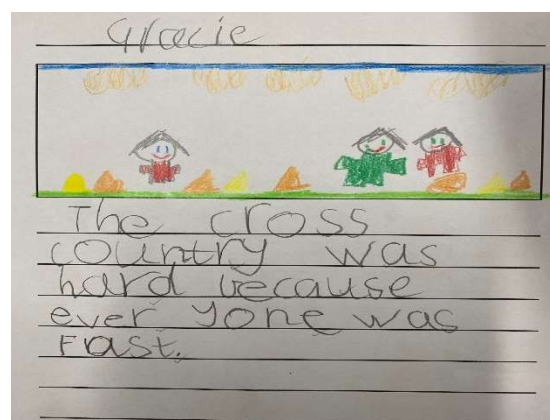 Gracie
The cross
country was
hard because
ever yone was
Fast.